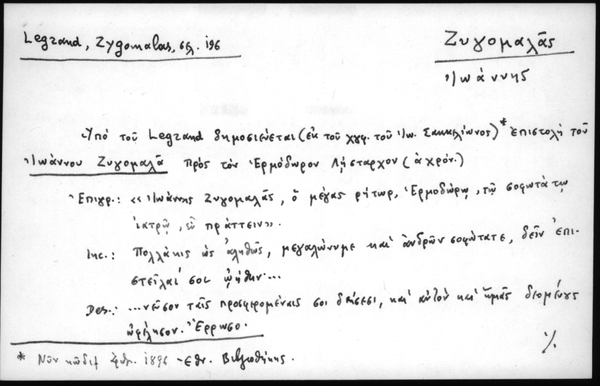 Legrand, Zygomalas, σελ. 196
Ζυγομαλᾶς
Ἰωάννης
Ὑπό τοῦ Legrand δημοσιεύεται (ἐκ τοῦ χγφ. τοῦ Ἰω. Σακκελίωνος)* ἐπιστολή τοῦ
Ἰωάννου Ζυγομαλᾶ πρός τόν Ἑρμόδωρον Λήσταρχον (ἀχρόν.)
Ἐπιγρ.: «Ἰωάννης Ζυγομαλᾶς, ὁ μέγας ῥήτωρ, Ἑρμοδώρῳ, τῷ σοφωτάτῳ
ἰατρῷ, εὖ πράττειν».
Inc.: Πολλάκις ὡς ἀληθῶς, μεγαλώνυμε καί ἀνδρῶν σοφώτατε, δεῖν ἐπι-
στεῖλαί σοι ᾠήθην...
Des.: ...νεῦσον ταῖς προσφερομέναις σοι δεήσεσι, καί αὐτόν καί ἡμᾶς δεομένους
ὠφέλησον. Ἔρρωσο.
* Νῦν κώδιξ ἀρ. 1896 Ἐθν. Βιβλιοθήκης.
./.